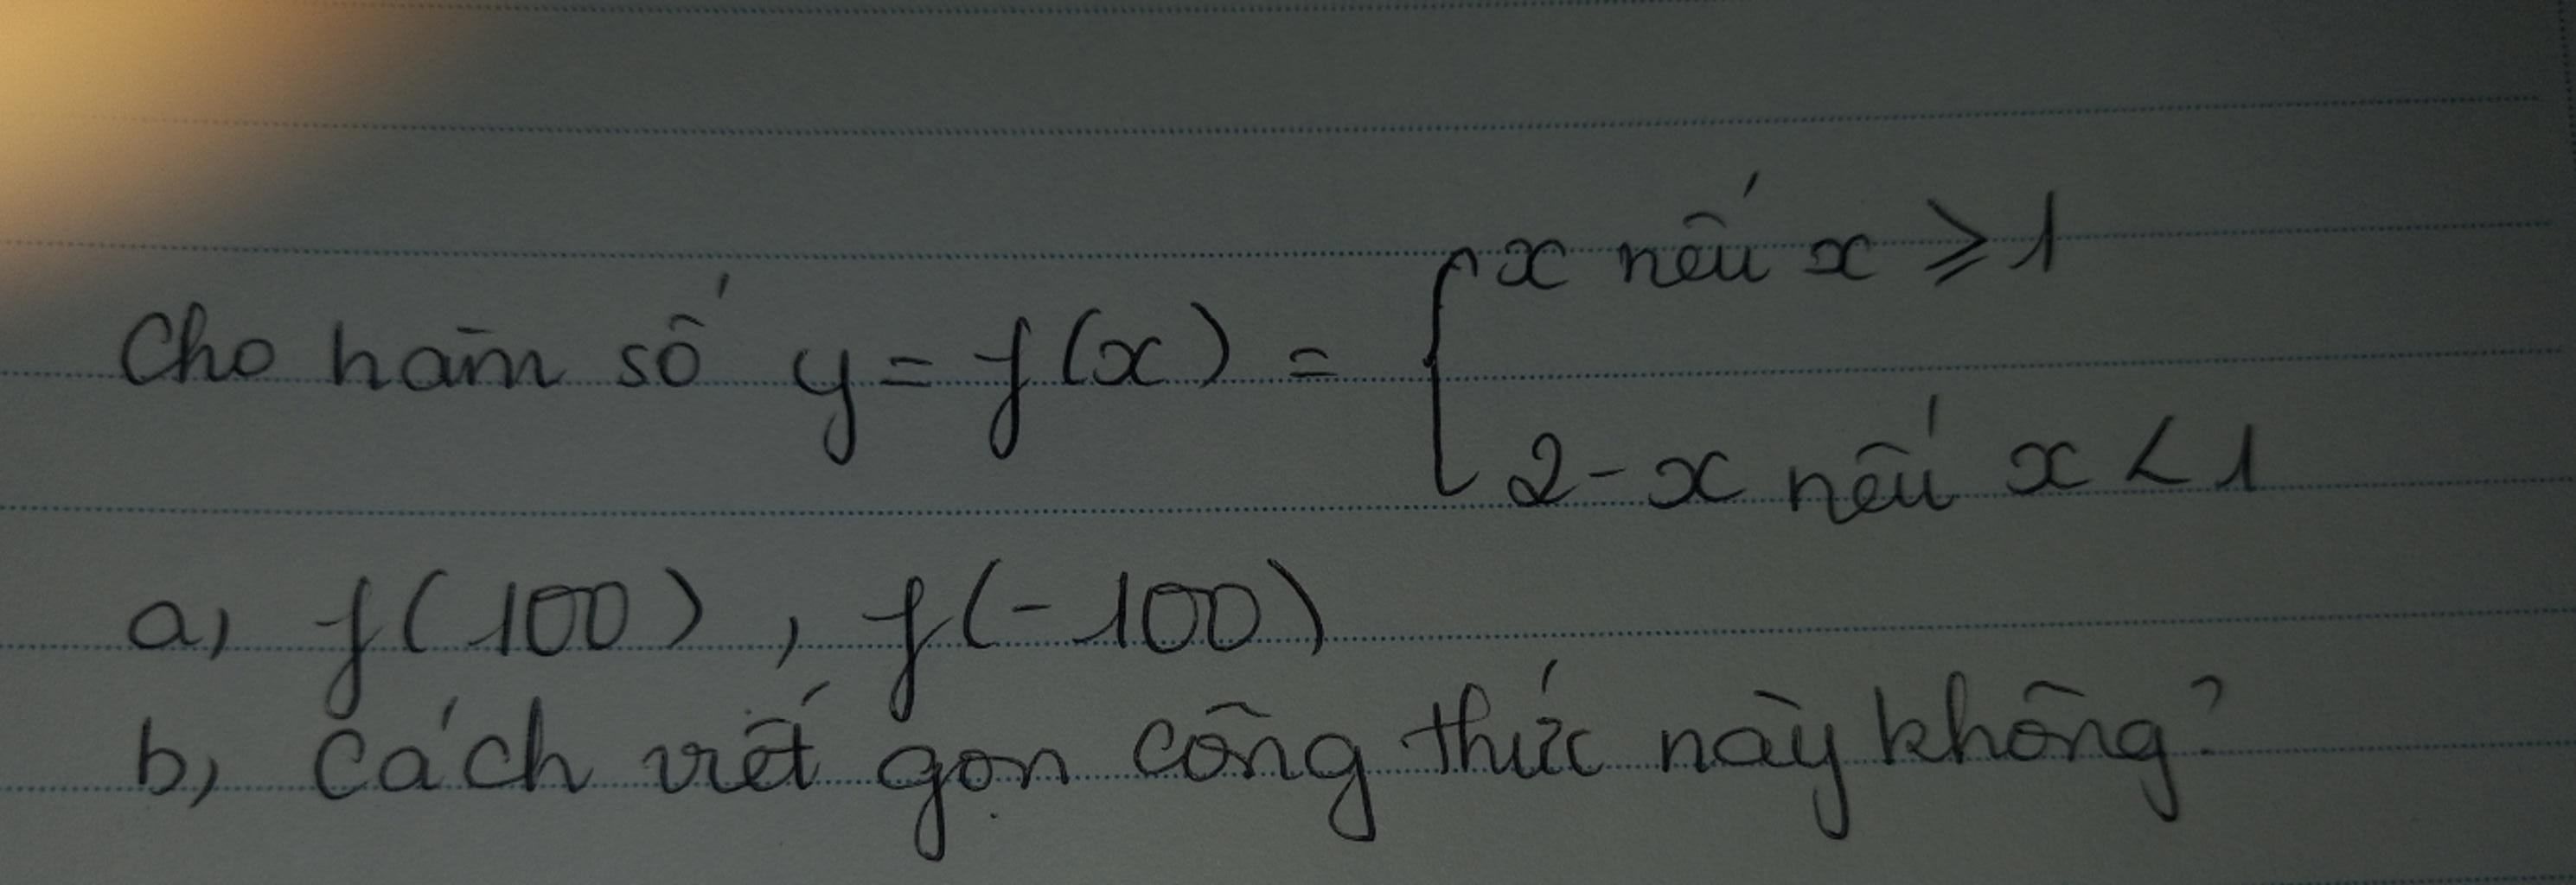 x nếu x ⩾ 1
Cho hàm số y = f(x) = {
2 - x nếu x < 1
a, f(100), f(-100)
b, Cách viết gọn công thức này không?